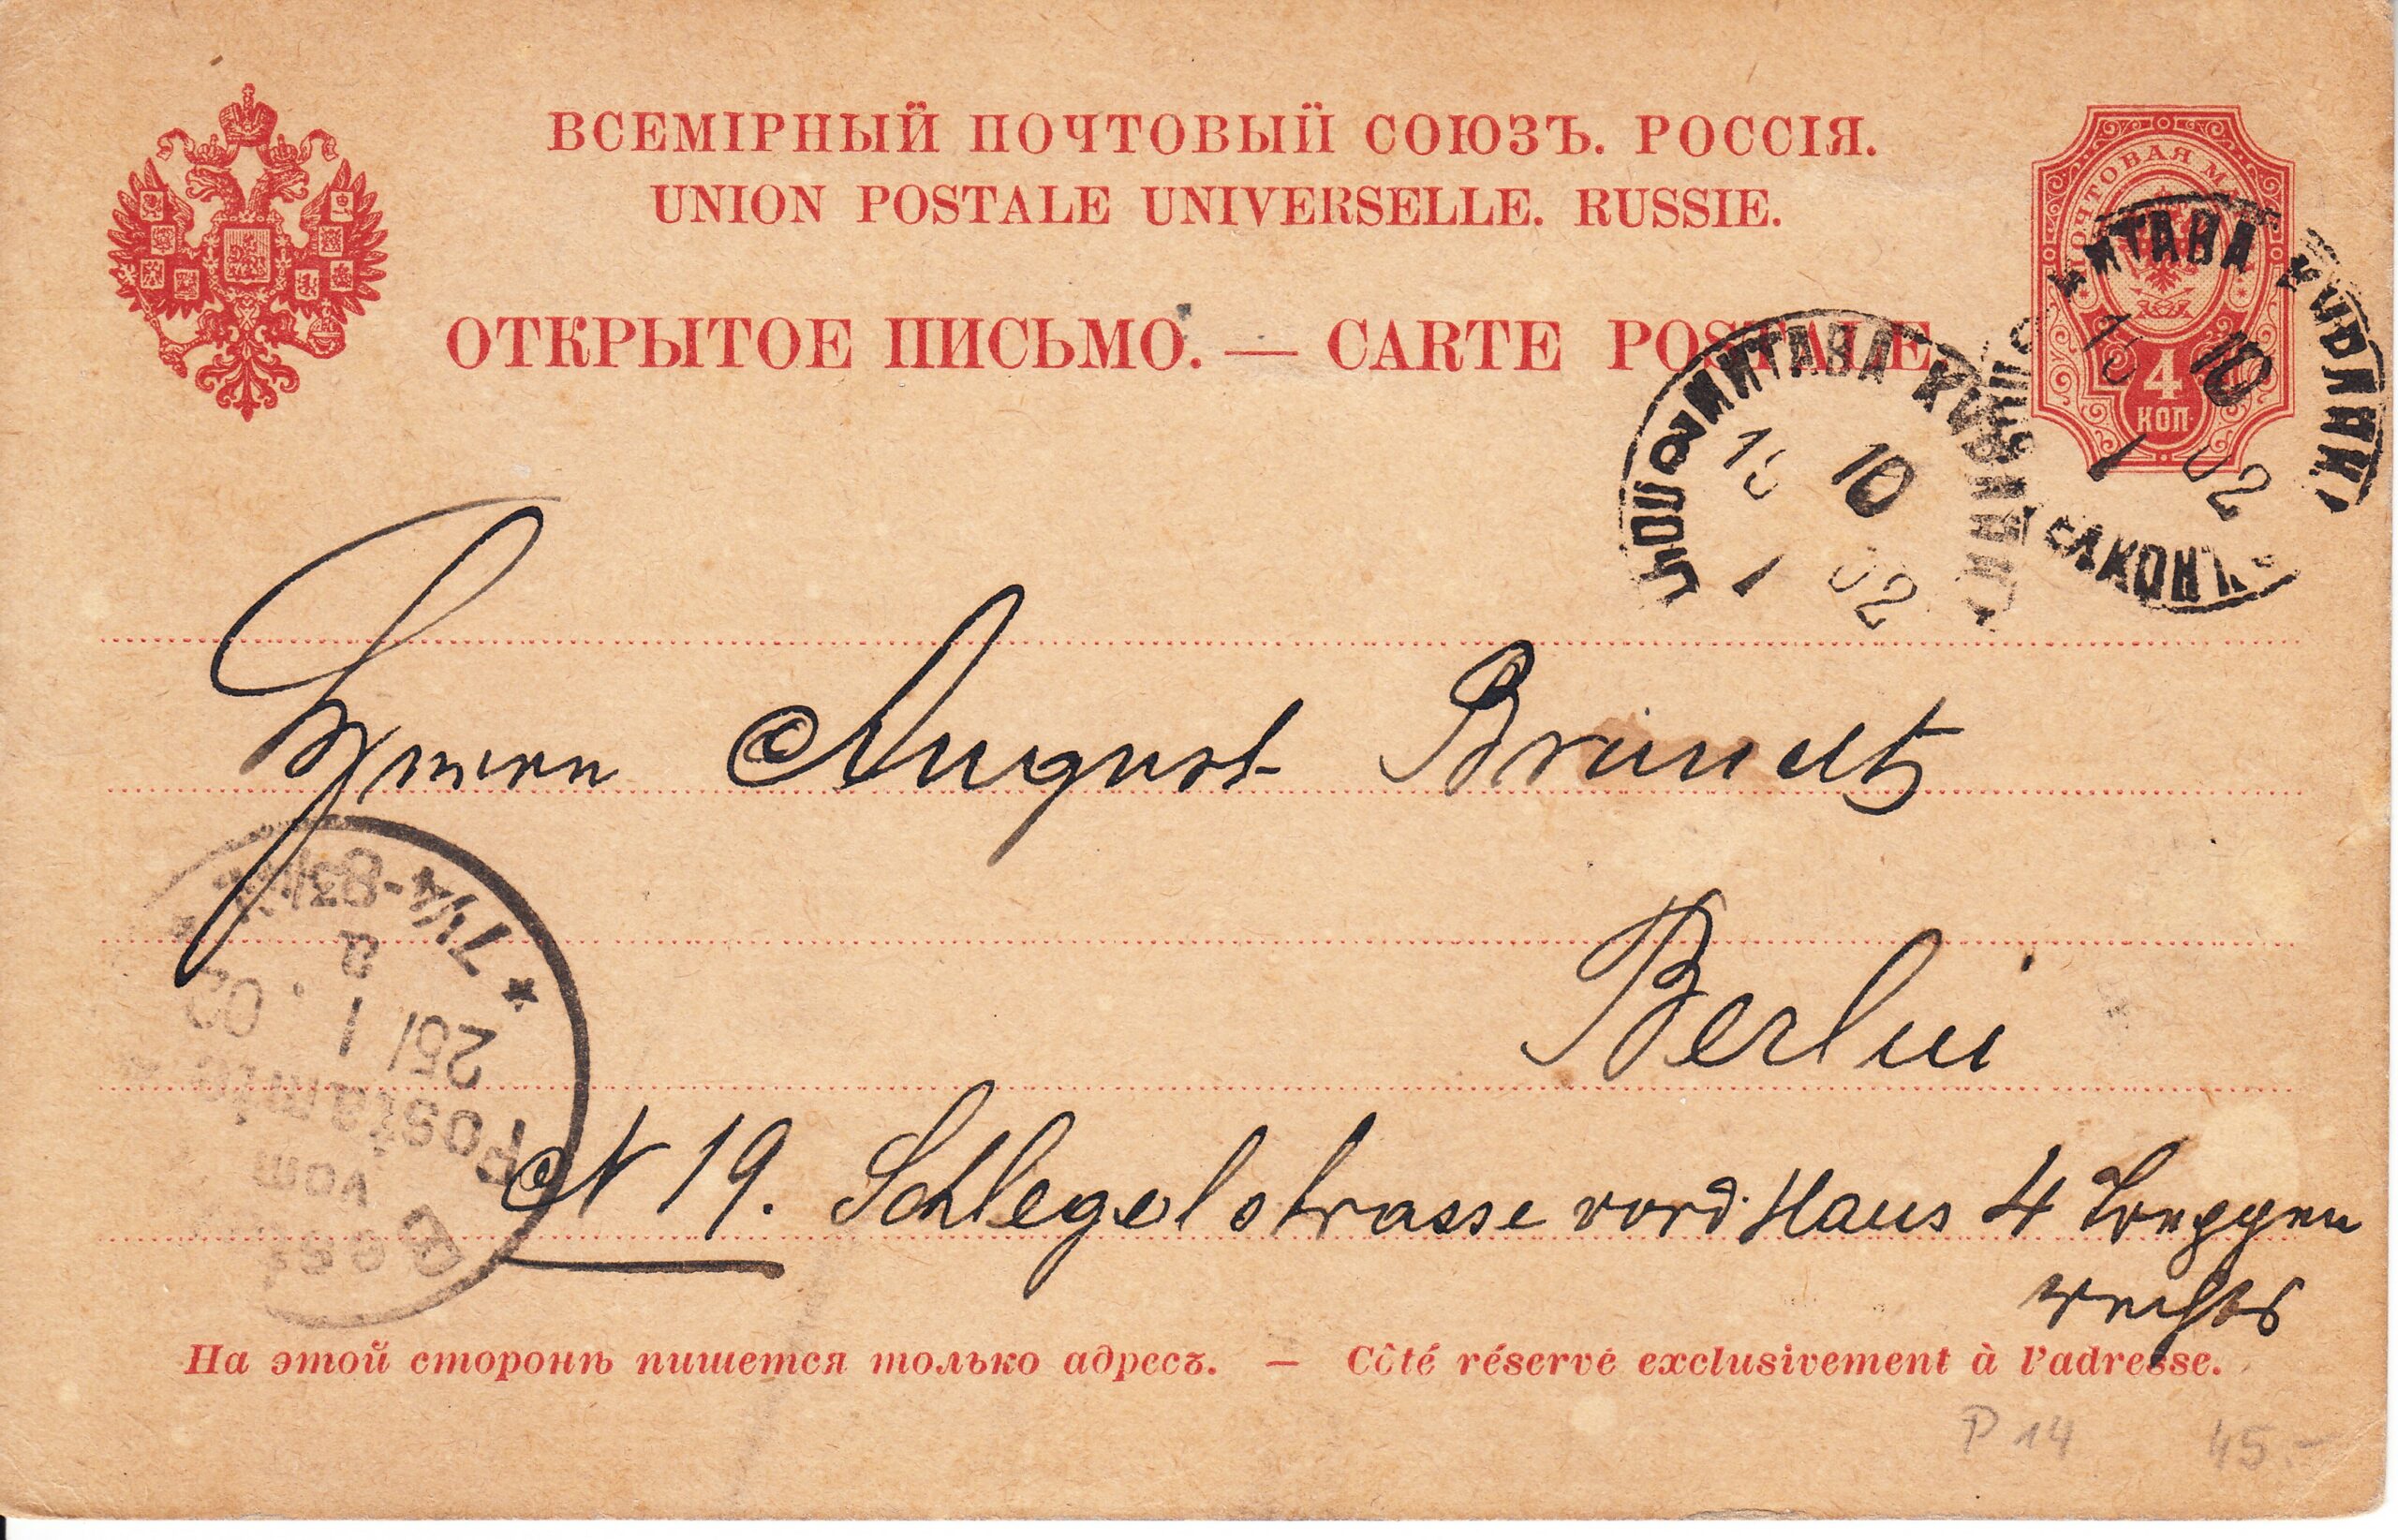 ВСЕМІРНЫЙ ПОЧТОВЫЙ СОЮЗЪ. РОССІЯ.
UNION POSTALE UNIVERSELLE. RUSSIE.
ОТКРЫТОЕ ПИСЬМО. — CARTE POSTALE.
ПОЧТОВАЯ
4
КОП
МИТАВА
10
1 02
МИТАВА КУРЛЯН
10
1 02
Herrn August
Berlin
N 19. Schlegelstrasse vord. Haus 4 Treppen
rechts
Best
vom
Postamte
25/1 . 02
a
* 7¼-8½
На этой сторонѣ пишется только адресъ. — Côté réservé exclusivement à l'adresse.
P 14 45.-